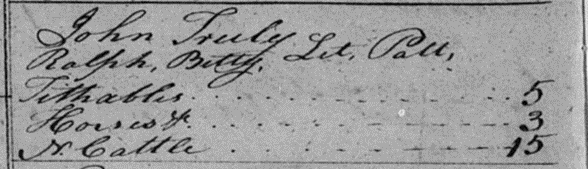 John Truly
Ralph, Betty, Let, Patt,
Tithables . . . . . . . . . . 5
Horses &. . . . . . . . . . 3
N. Cattle . . . . . . . . . 15